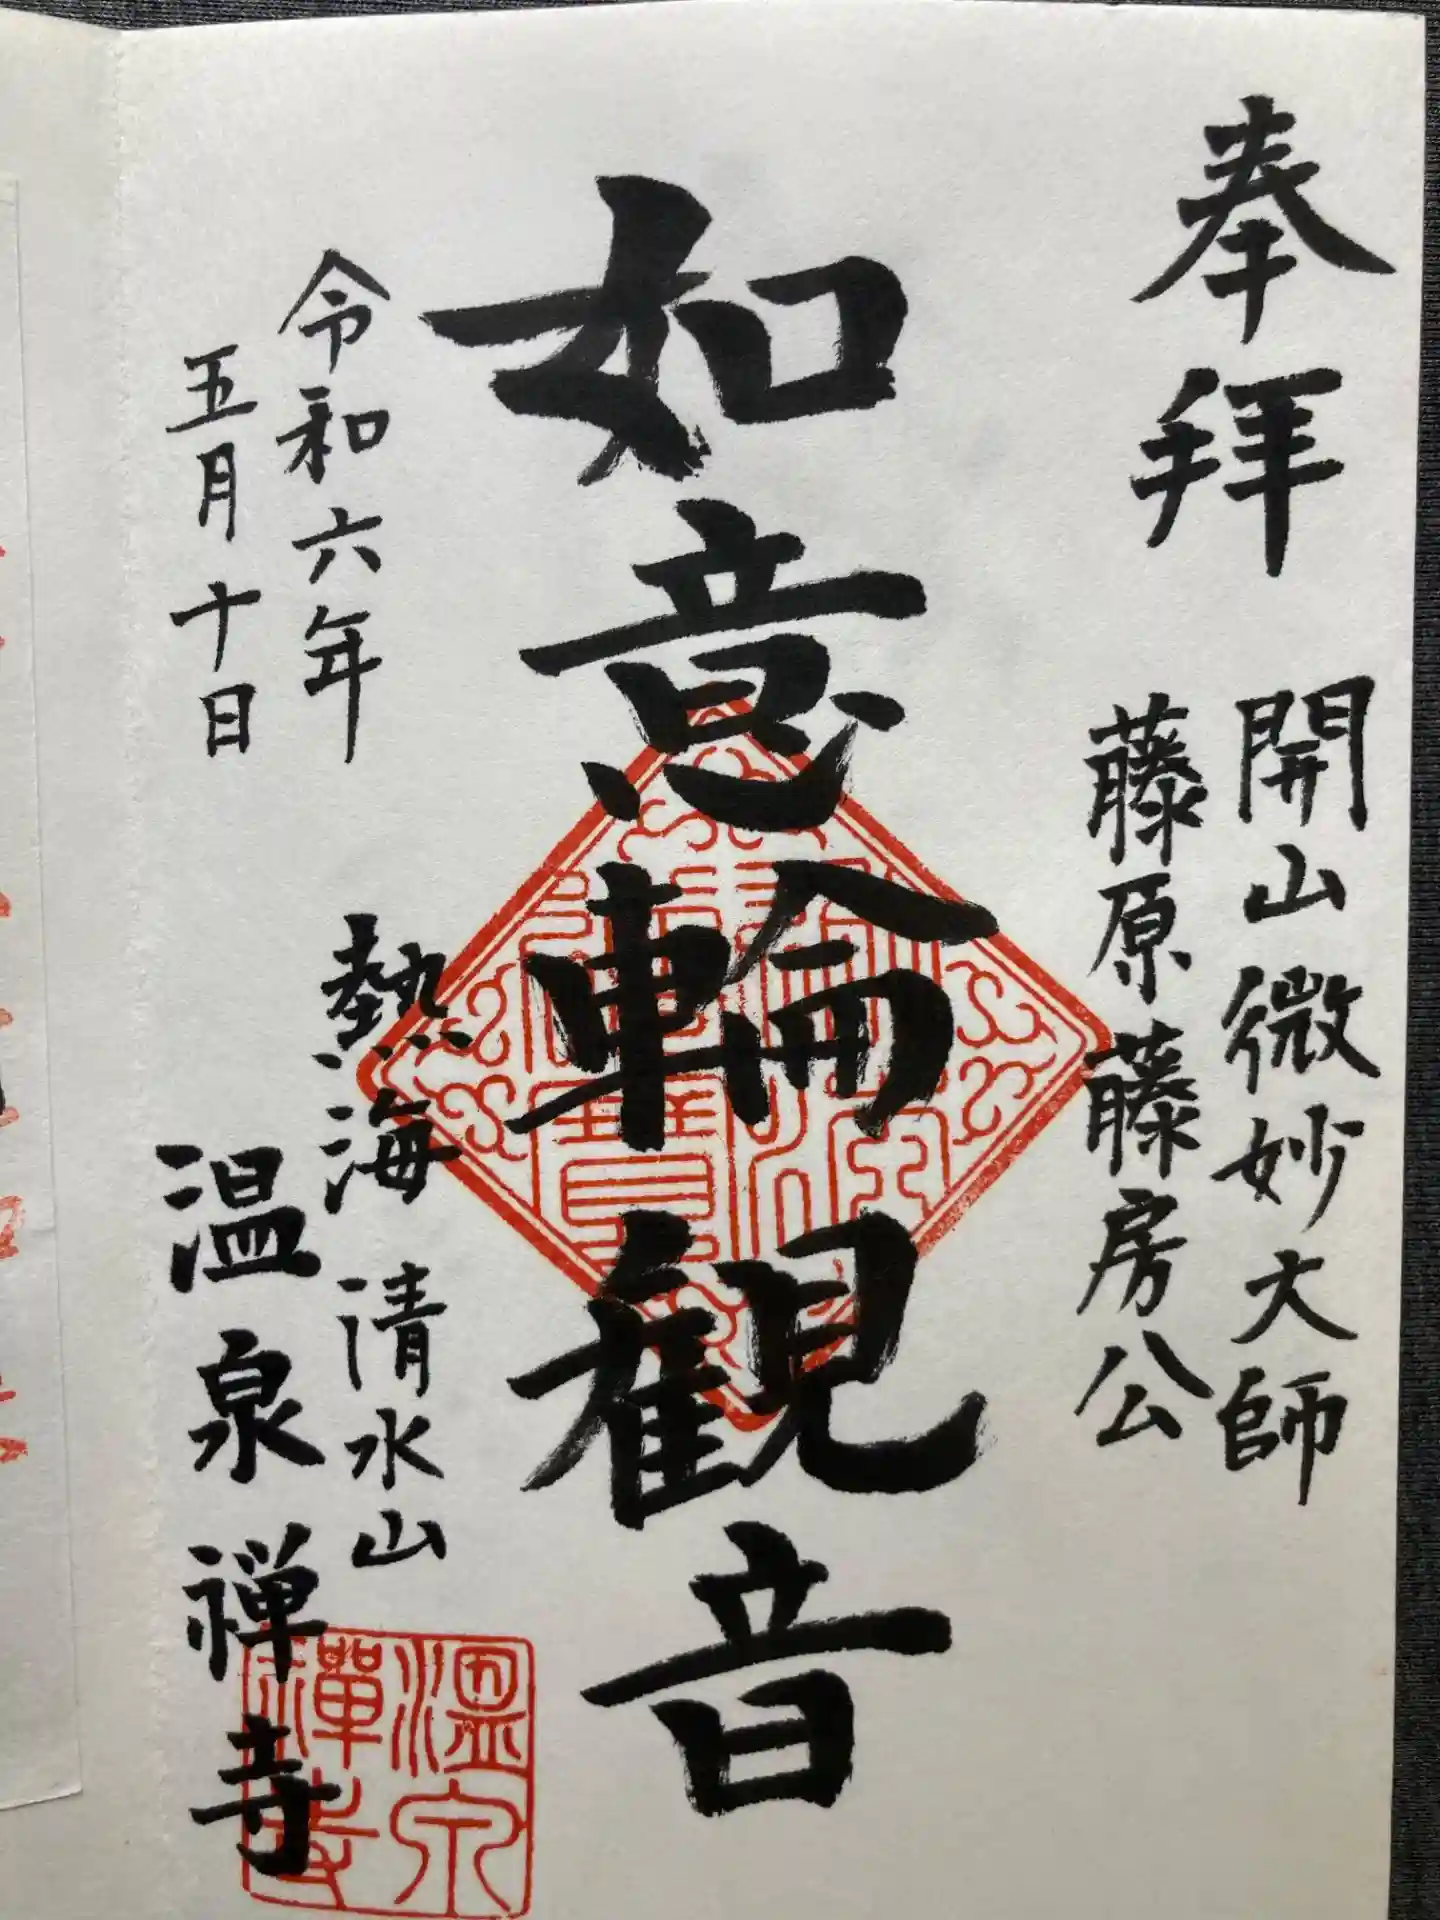 奉拜
開山微妙大師
藤原藤房公
如意輪観音
令和六年
五月十日
熱海 清水山
温泉禅寺
溫泉禪寺